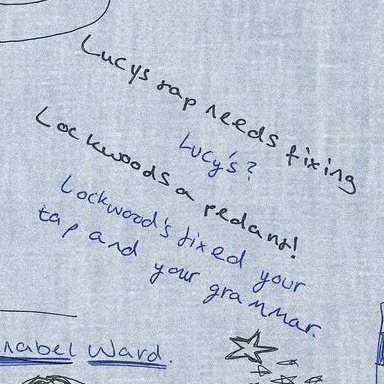 Lucys tap needs fixing
Lucy's?
Lockwoods a pedant!
Lockwood's fixed your
tap and your grammar.
Ward.